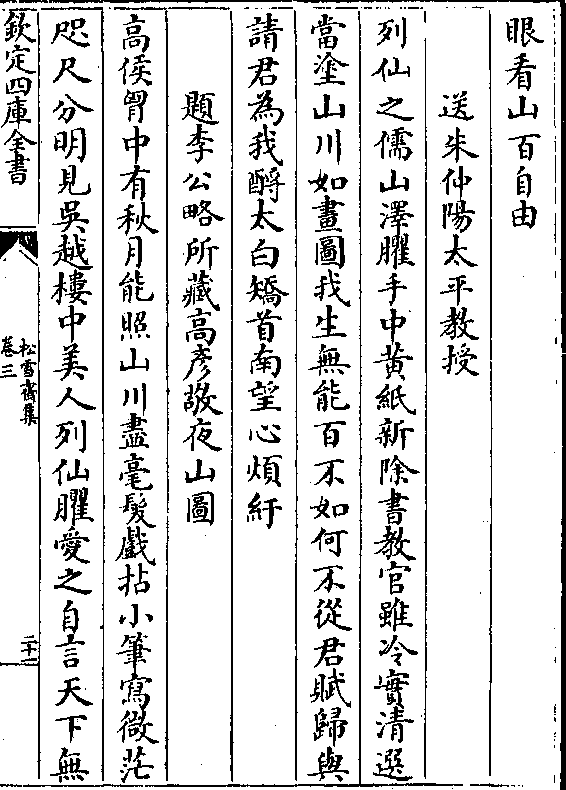 眼看山百自由
送朱仲陽太平教授
列仙之儒山澤臞手中黄紙新除書教官雖冷實清選
當塗山川如畫圖我生無能百不如何不從君賦歸與
請君為我酹太白矯首南望心煩紆
題李公略所藏高彦敬夜山圖
高侯胷中有秋月能照山川盡毫髮戲拈小筆寫微茫
咫尺分明見吳越樓中美人列仙臞愛之自言天下無
欽定四庫全書
松雪齋集
卷三
二十一